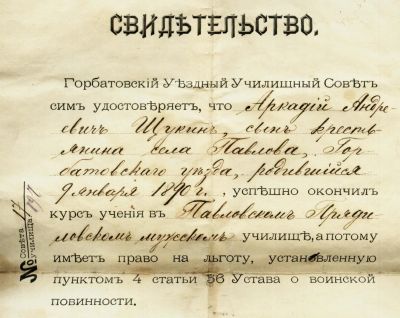 СВИДѢТЕЛЬСТВО.
Горбатовскій Уѣздный Училищный Совѣтъ
симъ удостовѣряетъ, что Аркадій Андре-
евичъ Щукинъ, сынъ кресть-
янина села Павлова, Гор-
батовскаго уѣзда, родившійся
9 января 1890 г., успѣшно окончилъ
курсъ ученія въ Павловскомъ Пряди-
ловскомъ мужскомъ училищѣ, а потому
имѣетъ право на льготу, установленную
пунктомъ 4 статьи 56 Устава о воинской
повинности.
№ Совѣта 17
училища